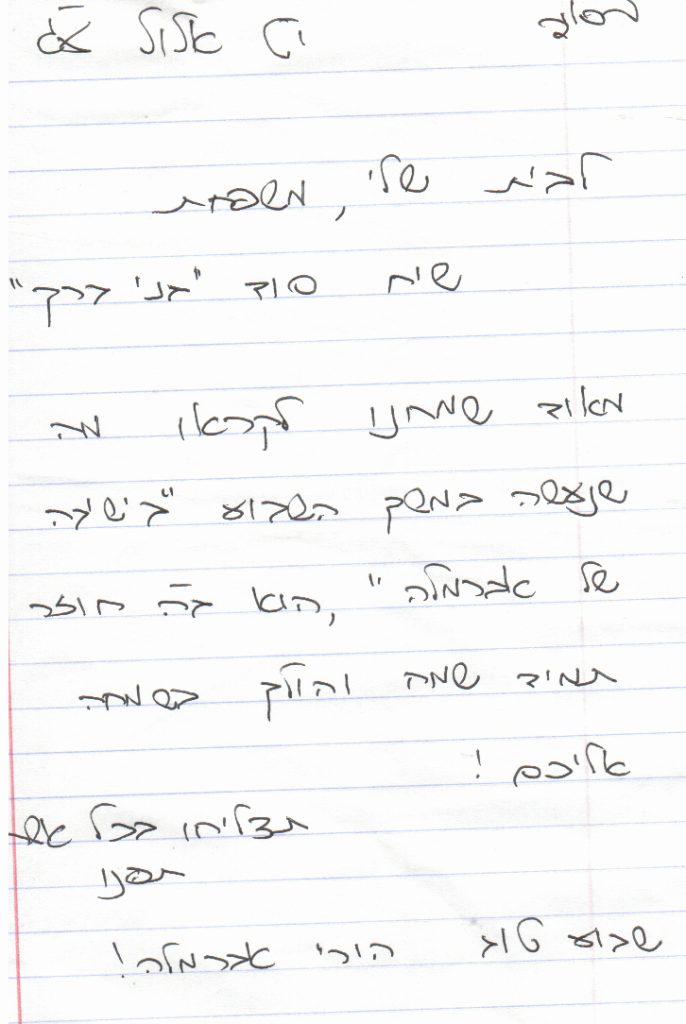 אלול
לבית שלי, משפחת
שיח סוד "בני דרך"
מאוד שמחנו לקראו מה
שנעשה במשך השבוע "בישיבה
של אברמלה", הוא ב"ה חוזר
תמיד שמח והולך בשמחה
אליכם!
תצליחו בכל אשר
תפנו
שבוע טוב הורי אברמלה!